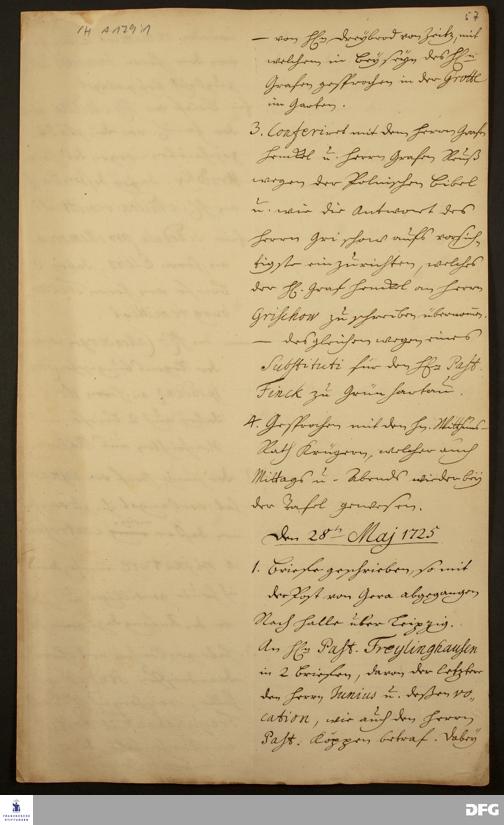 57
— von Hℓn Dreyberd von Zeitz, mit
welchem in Beyseyn des Hℓn
Grafen gesprochen in der Grotte
im Garten.
3. Conferiret mit dem Herrn Grafen
Henckel u. Herrn Grafen Reuß
wegen der Polnischen Bibel
u. wie die Antwort des
Herrn Grischow aufs vorsich-
tigste einzurichten, welches
der H. Graf Henckel an Herrn
Grischow zu schreiben übernomen.
— desgleichen wegen eines
Substituti für den Hℓn Past.
Finck zu Grün hartau.
4. Gesprochen mit den Hn.
Rath Krügern, welcher auch
Mittags u. Abends wieder bey
der Tafel gewesen.
Den 28ten Maj 1725
1. Briefe geschrieben, so mit
der Post von Gera abgegangen
Nach Halle über Leipzig.
An Hℓn Past. Freylinghausen
in 2 Briefen, davon der letztere
den Herrn Junius u. deßen vo-
cation, wie auch den Herrn
Past. Köppen betraf. Dabey
FRANCKESCHE
STIFTUNGEN
DFG